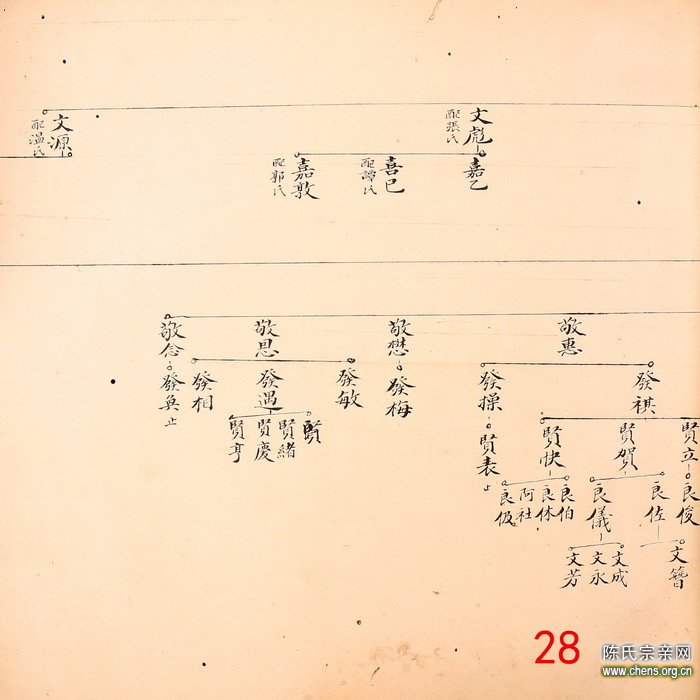 文彪
配張氏
嘉乙
喜已
配譚氏
嘉敦
配郭氏
文源
配温氏
敬惠
敬懋
敬思
敬念
發祺
發操
發梅
發敏
發遇
發相
發奐止
賢立
賢賀
賢快
賢表止
賢
賢緒
賢慶
賢亨
良俊
良佐
良儀
良伯
良休
阿社
良伋
文簪
文成
文永
文芳
28
陈氏宗亲网
www.chens.org.cn